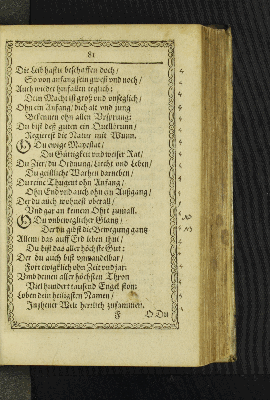 81
Die Leib hastu beschaffen doch /
So von anfang sein gwest und noch /
Auch wieder hinfallen teglich:
Dein Macht ist groß und unseglich /
Ohn ein Anfang / dich alt und jung
Bekennen ohn allen Vrsprung:
Du bist deß guten ein Quellbrunn /
Regierest die Natur mit Wunn.
O Du ewige Majestat /
Du Gütigkeit und weiser Rat /
Du Zier / du Ordnung / Liecht und Leben /
Du geistliche Wachen darneben /
Du reine Thugent ohn Anfang /
Ohn End und auch ohn ein Außgang /
Der du auch wohnest oberall /
Und gar an keinem Ohrt zumall.
O Du unbeweglicher Glantz /
Der du gibst die Bewegung gantz
Allem das auff Erd leben thut /
Du bist das aller höchste Gut:
Der du auch bist unwandelbar /
Fort ewiglich ohn Zeit und jar:
Umb deinen aller höchsten Thron
Viel hundert tausend Engel ston:
Loben dein heiligsten Namen /
In jhener Welt herrlich zusammen.
F O Du